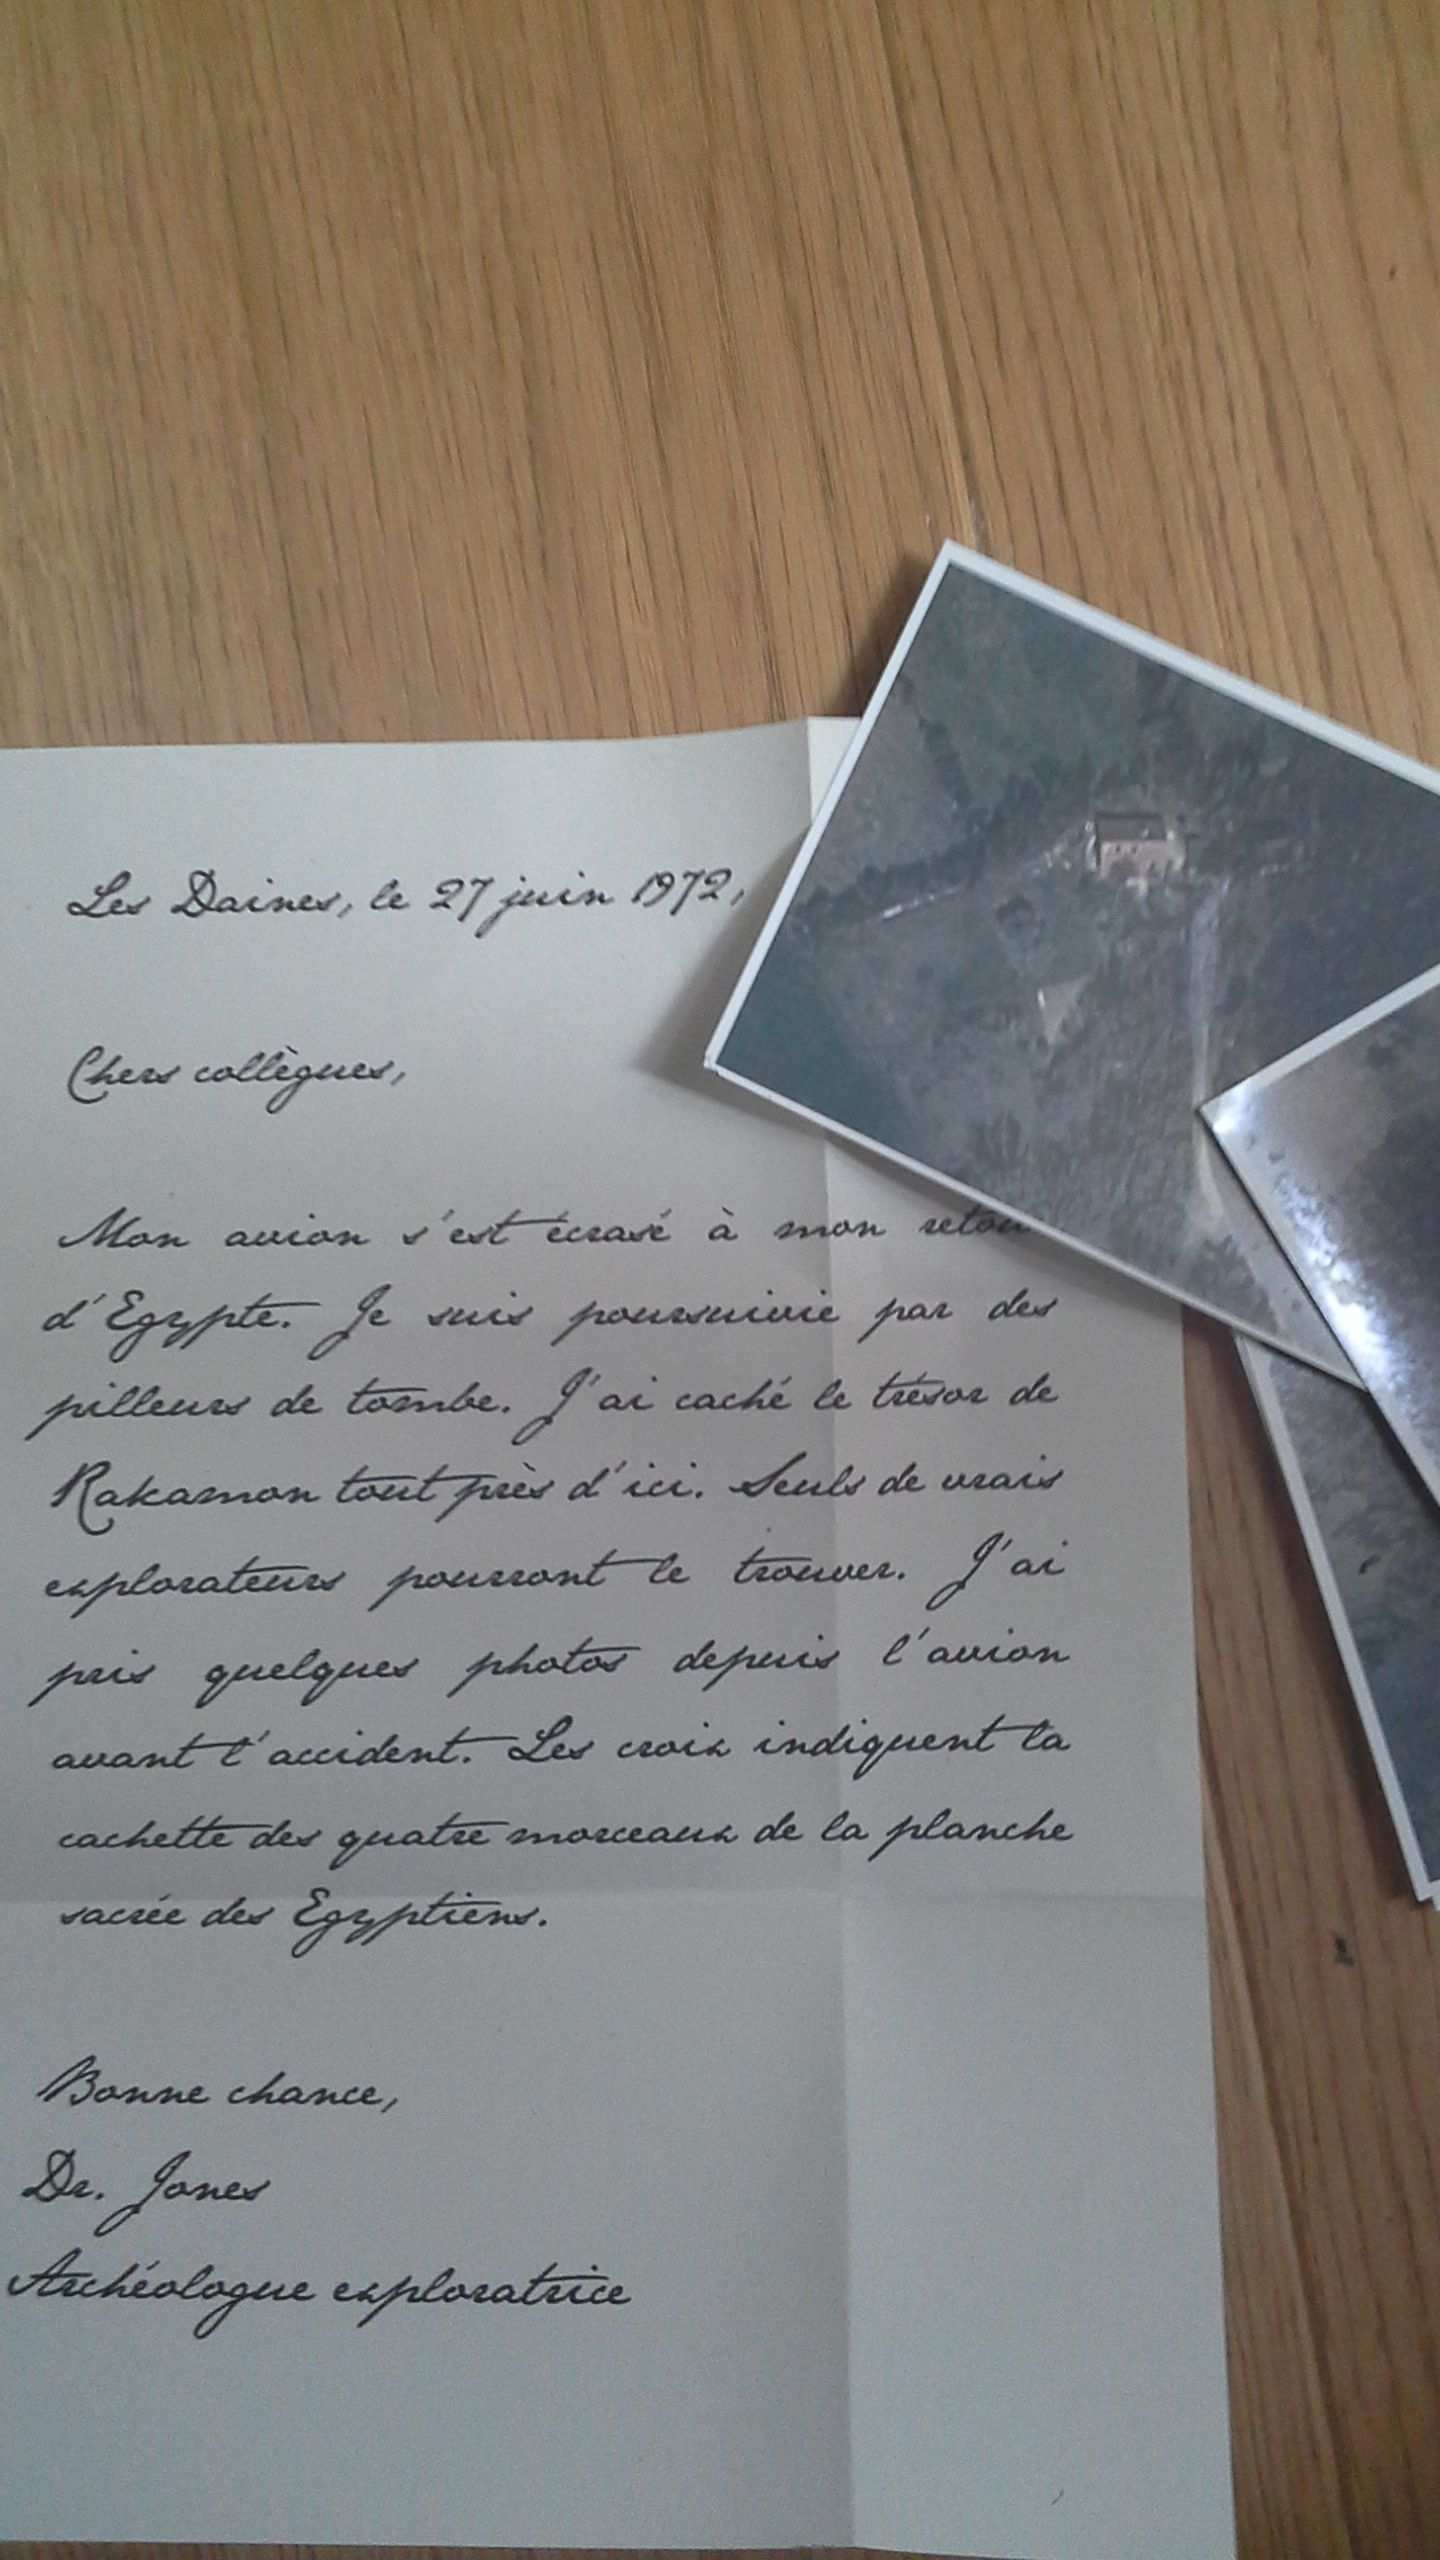 Les Daines, le 27 juin 1972,
Chers collègues,
Mon avion s'est écrasé à mon retou
d'Egypte. Je suis poursuivie par des
pilleurs de tombe. J'ai caché le trésor de
Rakamon tout près d'ici. Seuls de vrais
explorateurs pourront le trouver. J'ai
pris quelques photos depuis l'avion
avant l'accident. Les croix indiquent la
cachette des quatre morceaux de la planche
sacrée des Egyptiens.
Bonne chance,
Dr. Jones
Archéologue exploratrice